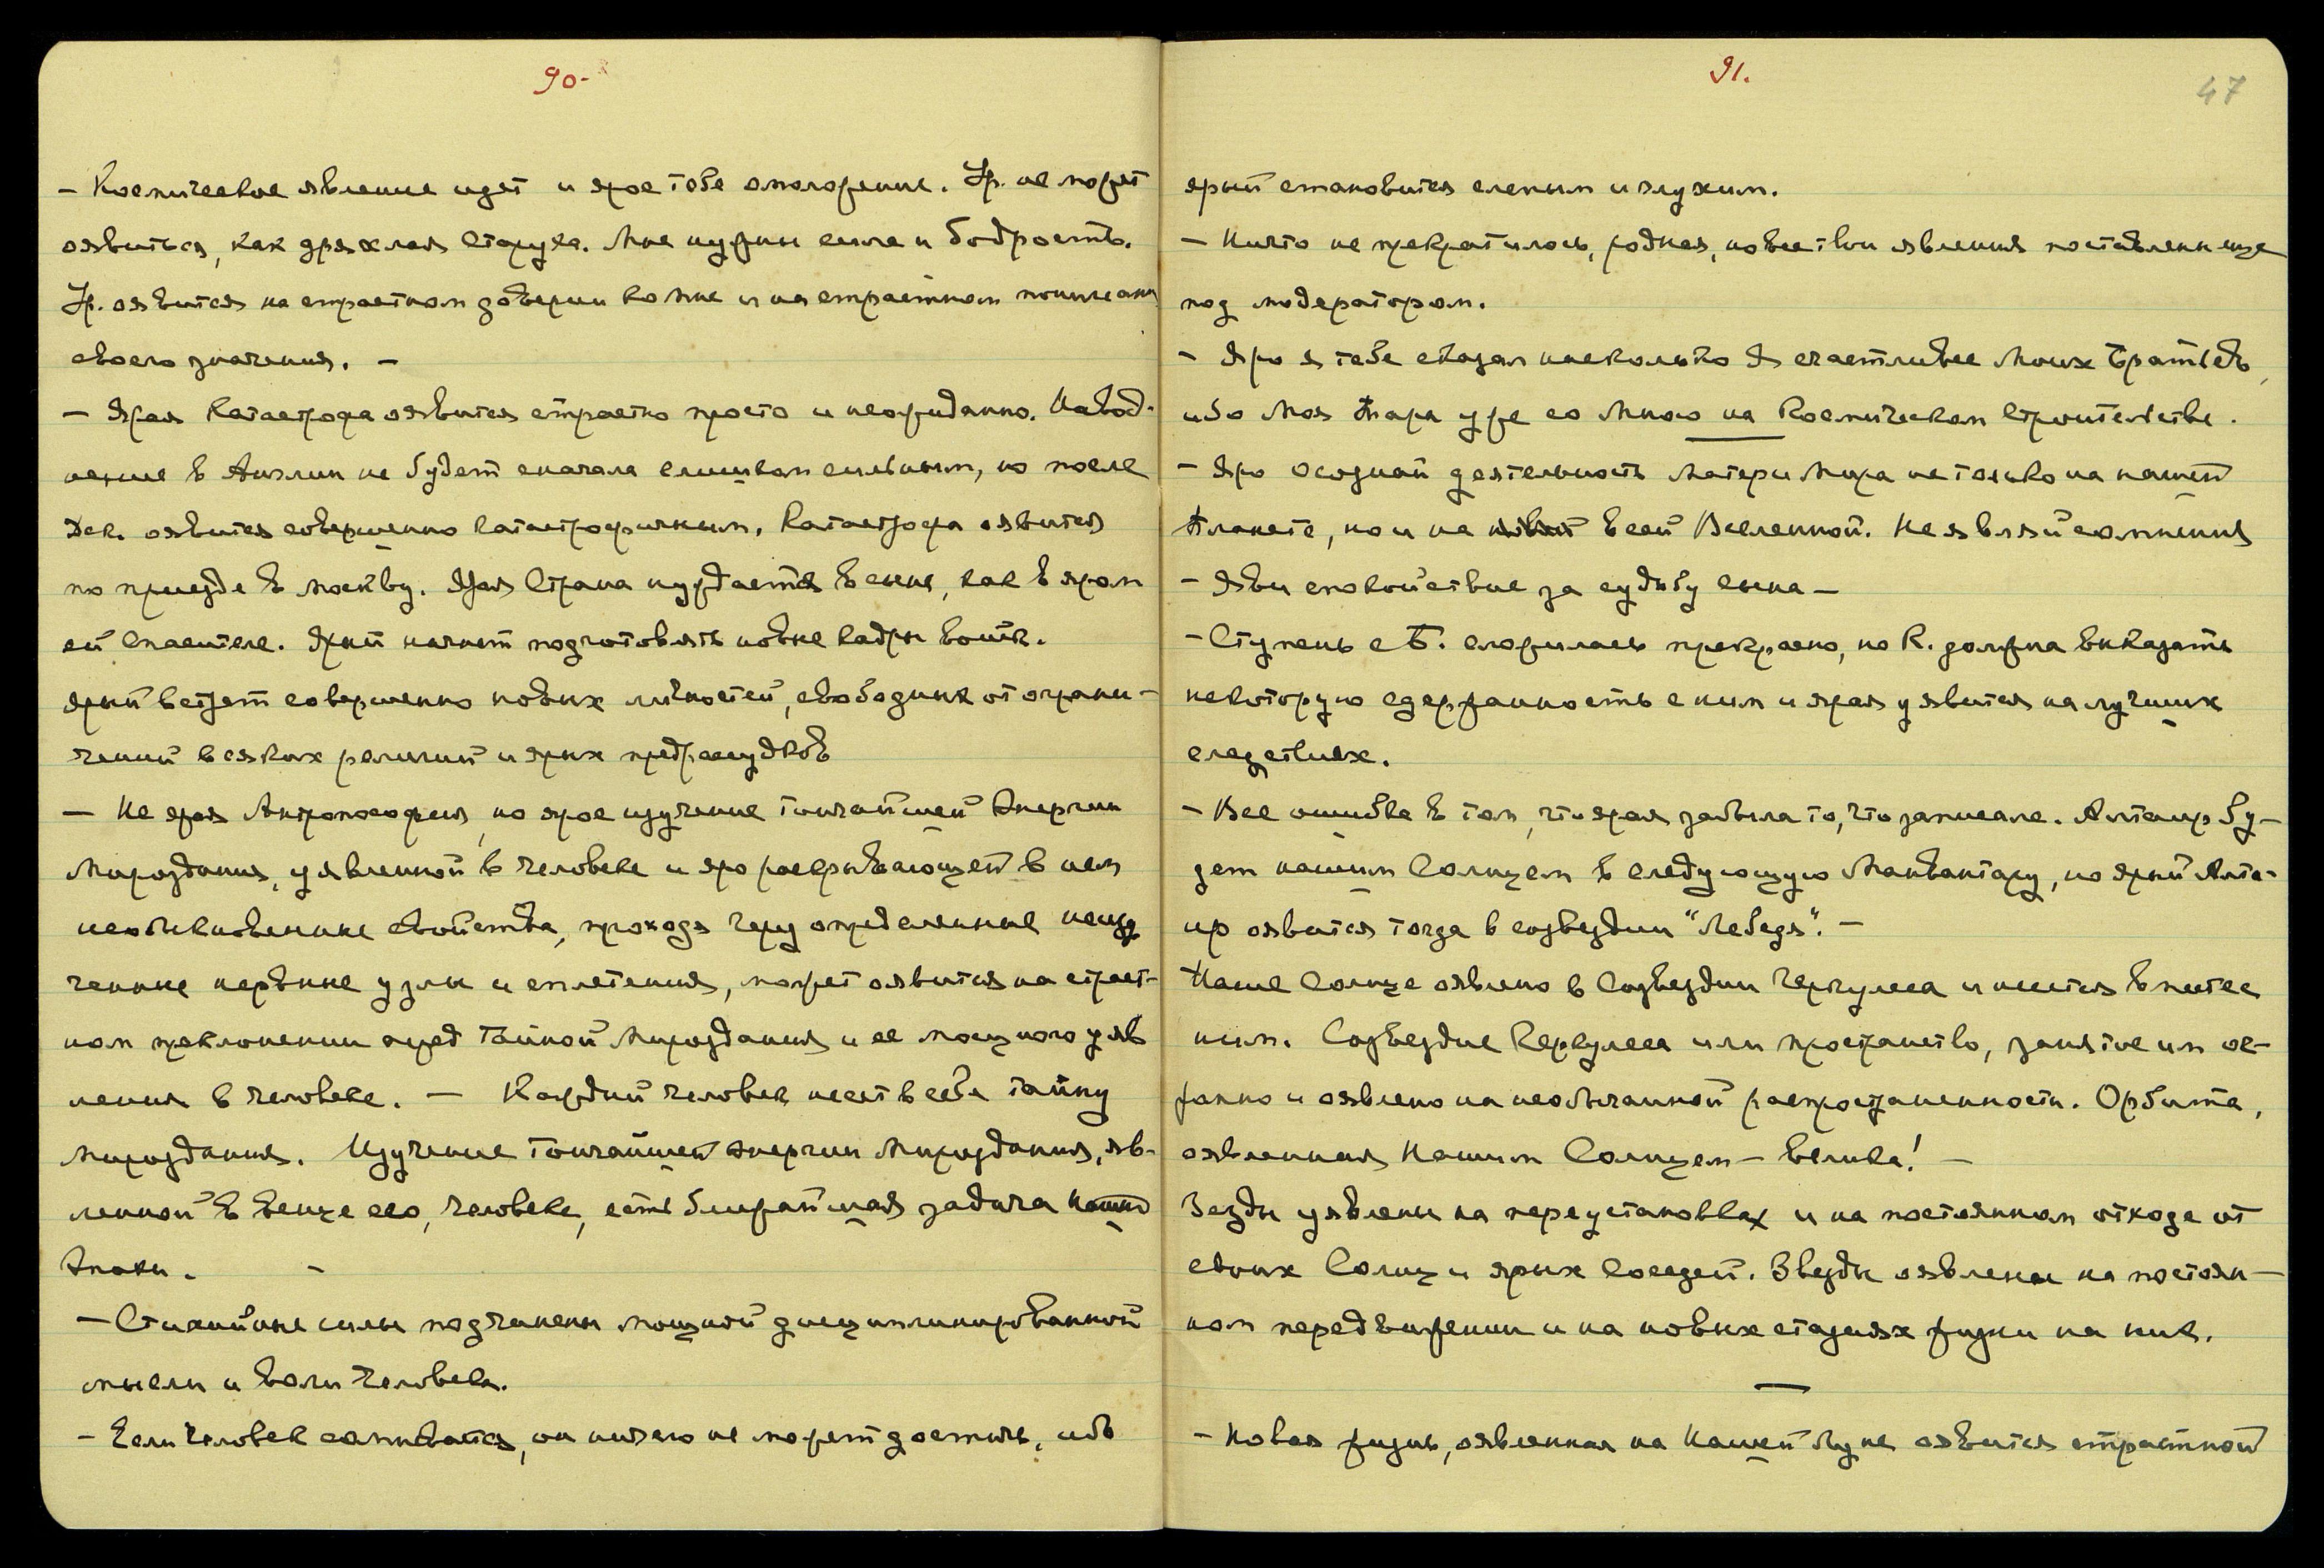 90-
- Космическое явление идет и ярое тебе омоложение. Ур. не может
оявиться, как дряхлая Старуха. Мне нужны сила и бодрость.
Ур. оявится на страстном доверии ко мне и на страстном понимании
своего значения. -
- Ярая Катастрофа оявится страстно просто и неожиданно. Навод-
нение в Англии не будет сначала слишком сильным, но после
Дек. оявится совершенно катастрофичным. Катастрофа оявится
по приезде в Москву. Ярая Страна нуждается в сыне, как в яром
ей Спасителе. Ярый начнет подготовлять новые кадры
ярый встретит совершенно новых личностей, свободных от ограни-
чений всяких религий и ярых предрассудков
- Не ярая Антропософия, но ярое изучение тончайшей Энергии
Мироздания, уявленной в человеке и яро раскрывающей в нем
необыкновенные свойства, проходя через определенные неизу
ченные нервные узлы и сплетения, может оявиться на страст-
ном преклонении перед Тайной Мироздания и ее мощного уяв
ления в человеке. - Каждый человек несет в себе тайну
мироздания. Изучение тончайшей энергии Мироздания, яв-
ленной в венце его, человеке, есть ближайшая задача Нашей
Эпохи. -
- Стихийные силы подчинены мощной дисциплинированной
мысли и воли Человека.
- Если Человек сомневается, он ничего не может достичь, ибо
91.
47
ярый становится слепым и глухим.
- Ничто не прекратилось, родная, но все твои явления поставлены еще
под модератором.
- Яро я тебе сказал насколько Я счастливее Моих Братьев,
ибо Моя Тара уже со Мною на Космическом Строительстве.
- Яро осознай деятельность Матери Мира не только на нашей
Планете, но и на всей Вселенной. Не являй сомнения
- Яви спокойствие за судьбу сына -
- Ступень с Б. сложилась прекрасно, но К. должна выказать
некоторую сдержанность с ним и ярая уявится на лучших
следствиях.
- Вся ошибка в том, что ярая забыла то, что записала. Альтаир бу-
дет нашим Солнцем в следующую Манвантару, но ярый Альта-
ир оявится тогда в созвездии "Лебедя". -
Наше Солнце оявлено в Созвездии Геркулеса и несется вместе с
ним. Созвездие Геркулеса или пространство, занятое им
и оявлено на необычайной распространенности. Орбита,
оявленная Нашим Солнцем - велика! -
Звезды уявлены на переустановках и на постоянном отходе от
своих Солнц и ярых Соседей. Звезды оявлены на постоян-
ном передвижении и на новых стадиях жизни на них.
- Новая жизнь, оявленная на Нашей Луне оявится страстной